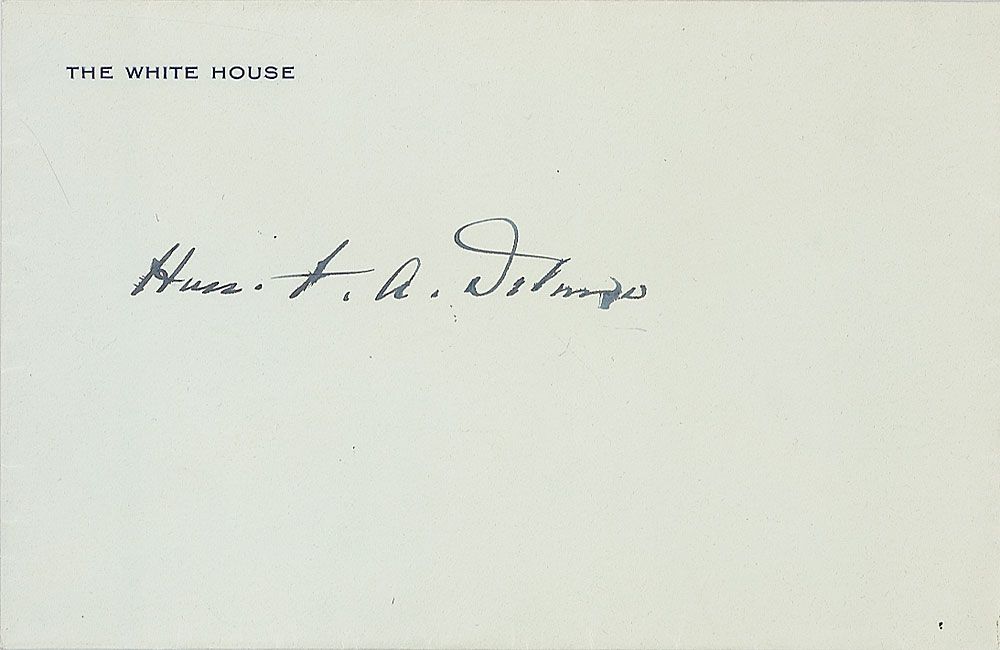 THE WHITE HOUSE
Hon. F. A. Delano